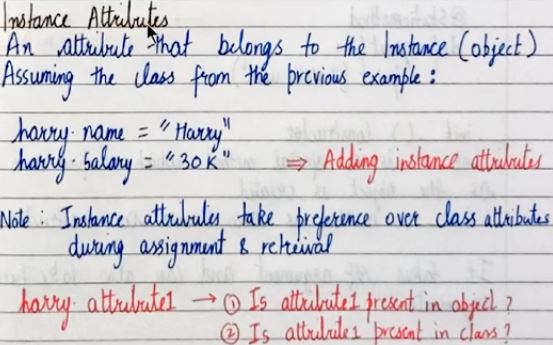 Instance Attributes
An attribute that belongs to the Instance (object)
Assuming the class from the previous example :
harry. name = "Harry"
harry. Salary = "30K" ⇒ Adding instance attributes
Note : Instance attributes take preference over class attributes
during assignment & retreival
harry. attribute1 → ① Is attribute1 present in object ?
② Is attribute1 present in class ?